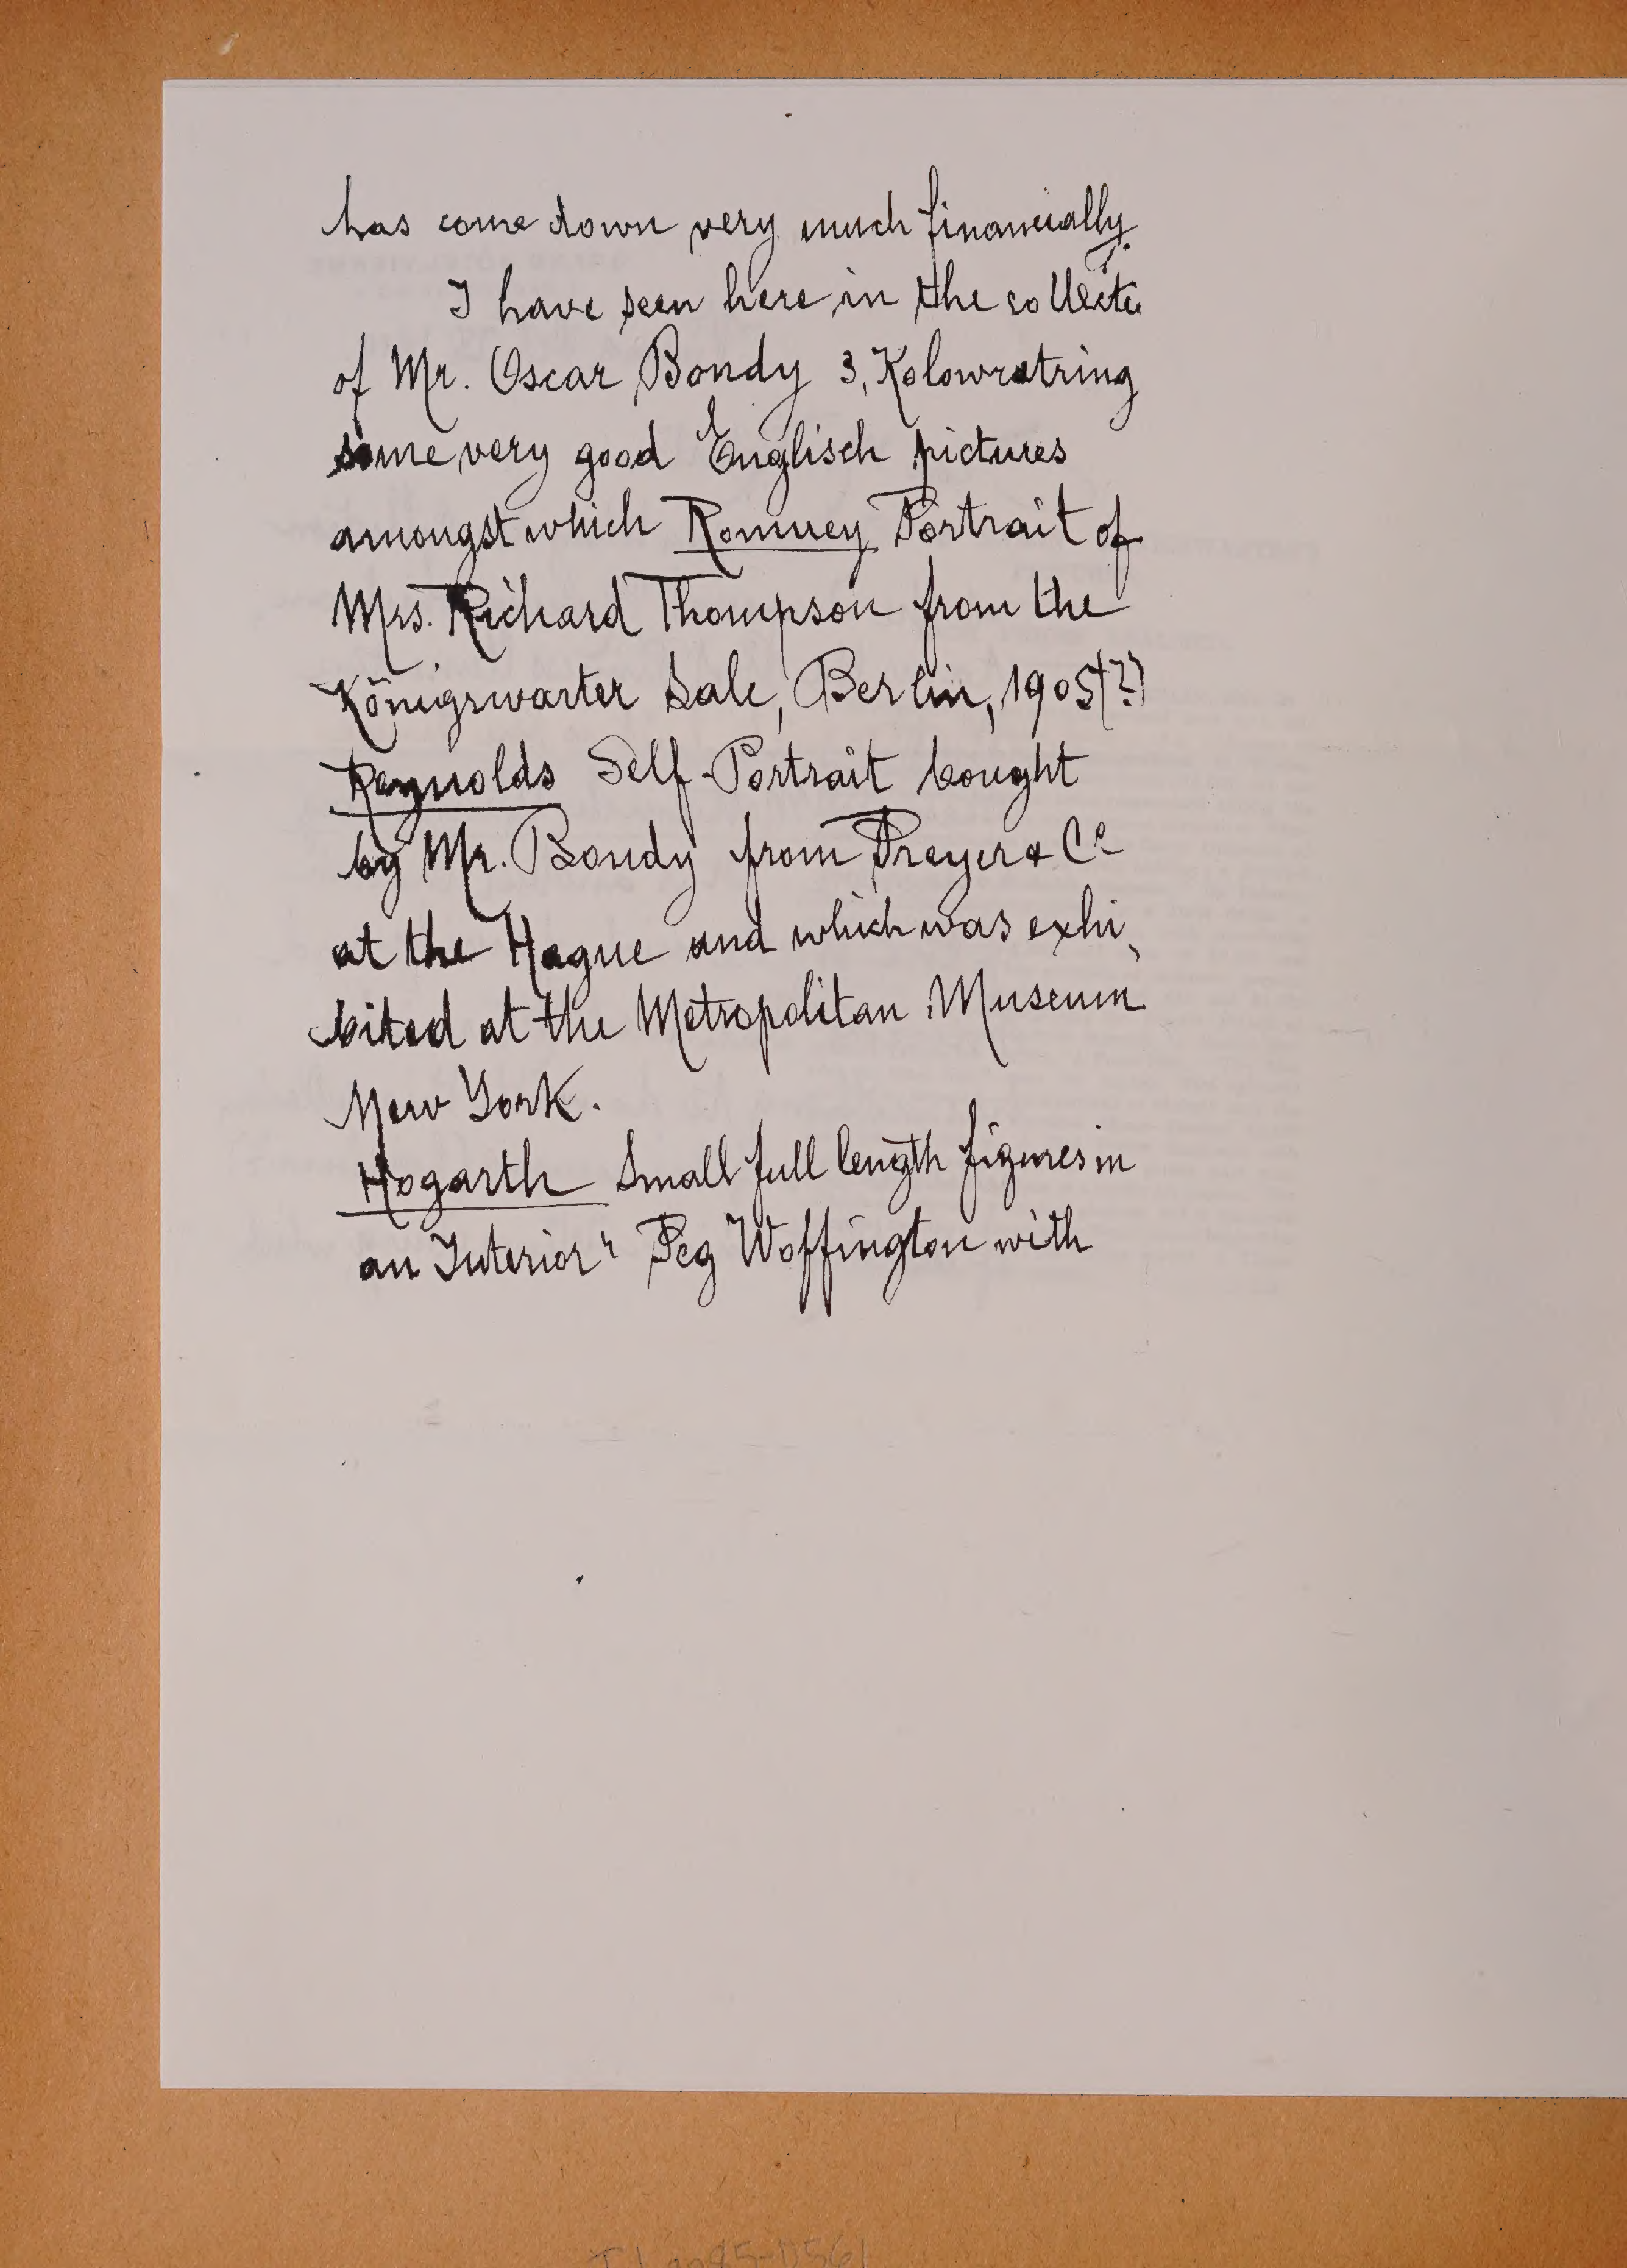 has come down very much financially.
I have seen here in the collecti
of Mr. Oscar Bondy 3, Kolowratring
some very good Englisch pictures
amongst which Romney Portrait of
Mrs. Richard Thompson from the
Königswarter Sale, Berlin, 1905(?)
Reynolds Self-Portrait bought
by Mr. Bondy from Preyer & Co
at the Hague and which was exhi-
bited at the Metropolitan Museum
New York.
Hogarth Small full length figures in
an Interior" Peg Woffington with